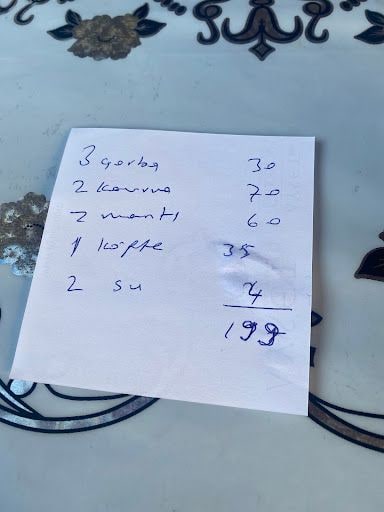 3 çorba 30
2 kavurma 70
2 mantı 60
1 köfte 35
2 su 4
199